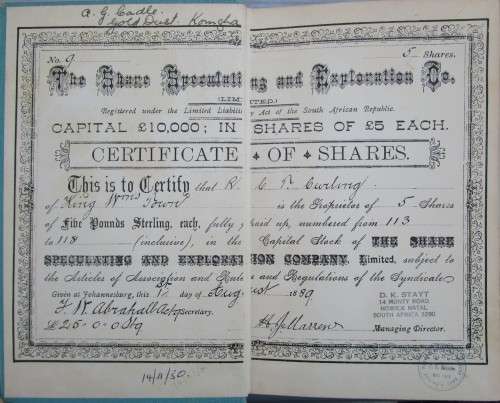 A. G. Cadle
Gold Dust Komgha
No. 9 5 Shares.
The Share Speculating and Exploration Co.
(LIMITED.)
Registered under the Limited Liability Act of the South African Republic.
CAPITAL £10,000; IN SHARES OF £5 EACH.
CERTIFICATE OF SHARES.
This is to Certify that R. C. P. Curling
of King Wms Town is the Proprietor of 5 Shares
of Five Pounds Sterling, each, fully paid up, numbered from 113
to 118 (inclusive), in the Capital Stock of THE SHARE
SPECULATING AND EXPLORATION COMPANY, Limited, subject to
the Articles of Association and Rules and Regulations of the Syndicate
Given at Johannesburg, this 1st day of August 1889
Secretary.
£25-0-0
Managing Director.
D. K. STAYT
14 MURRY ROAD
HOWICK NATAL
SOUTH AFRICA 3290
14/11/50.